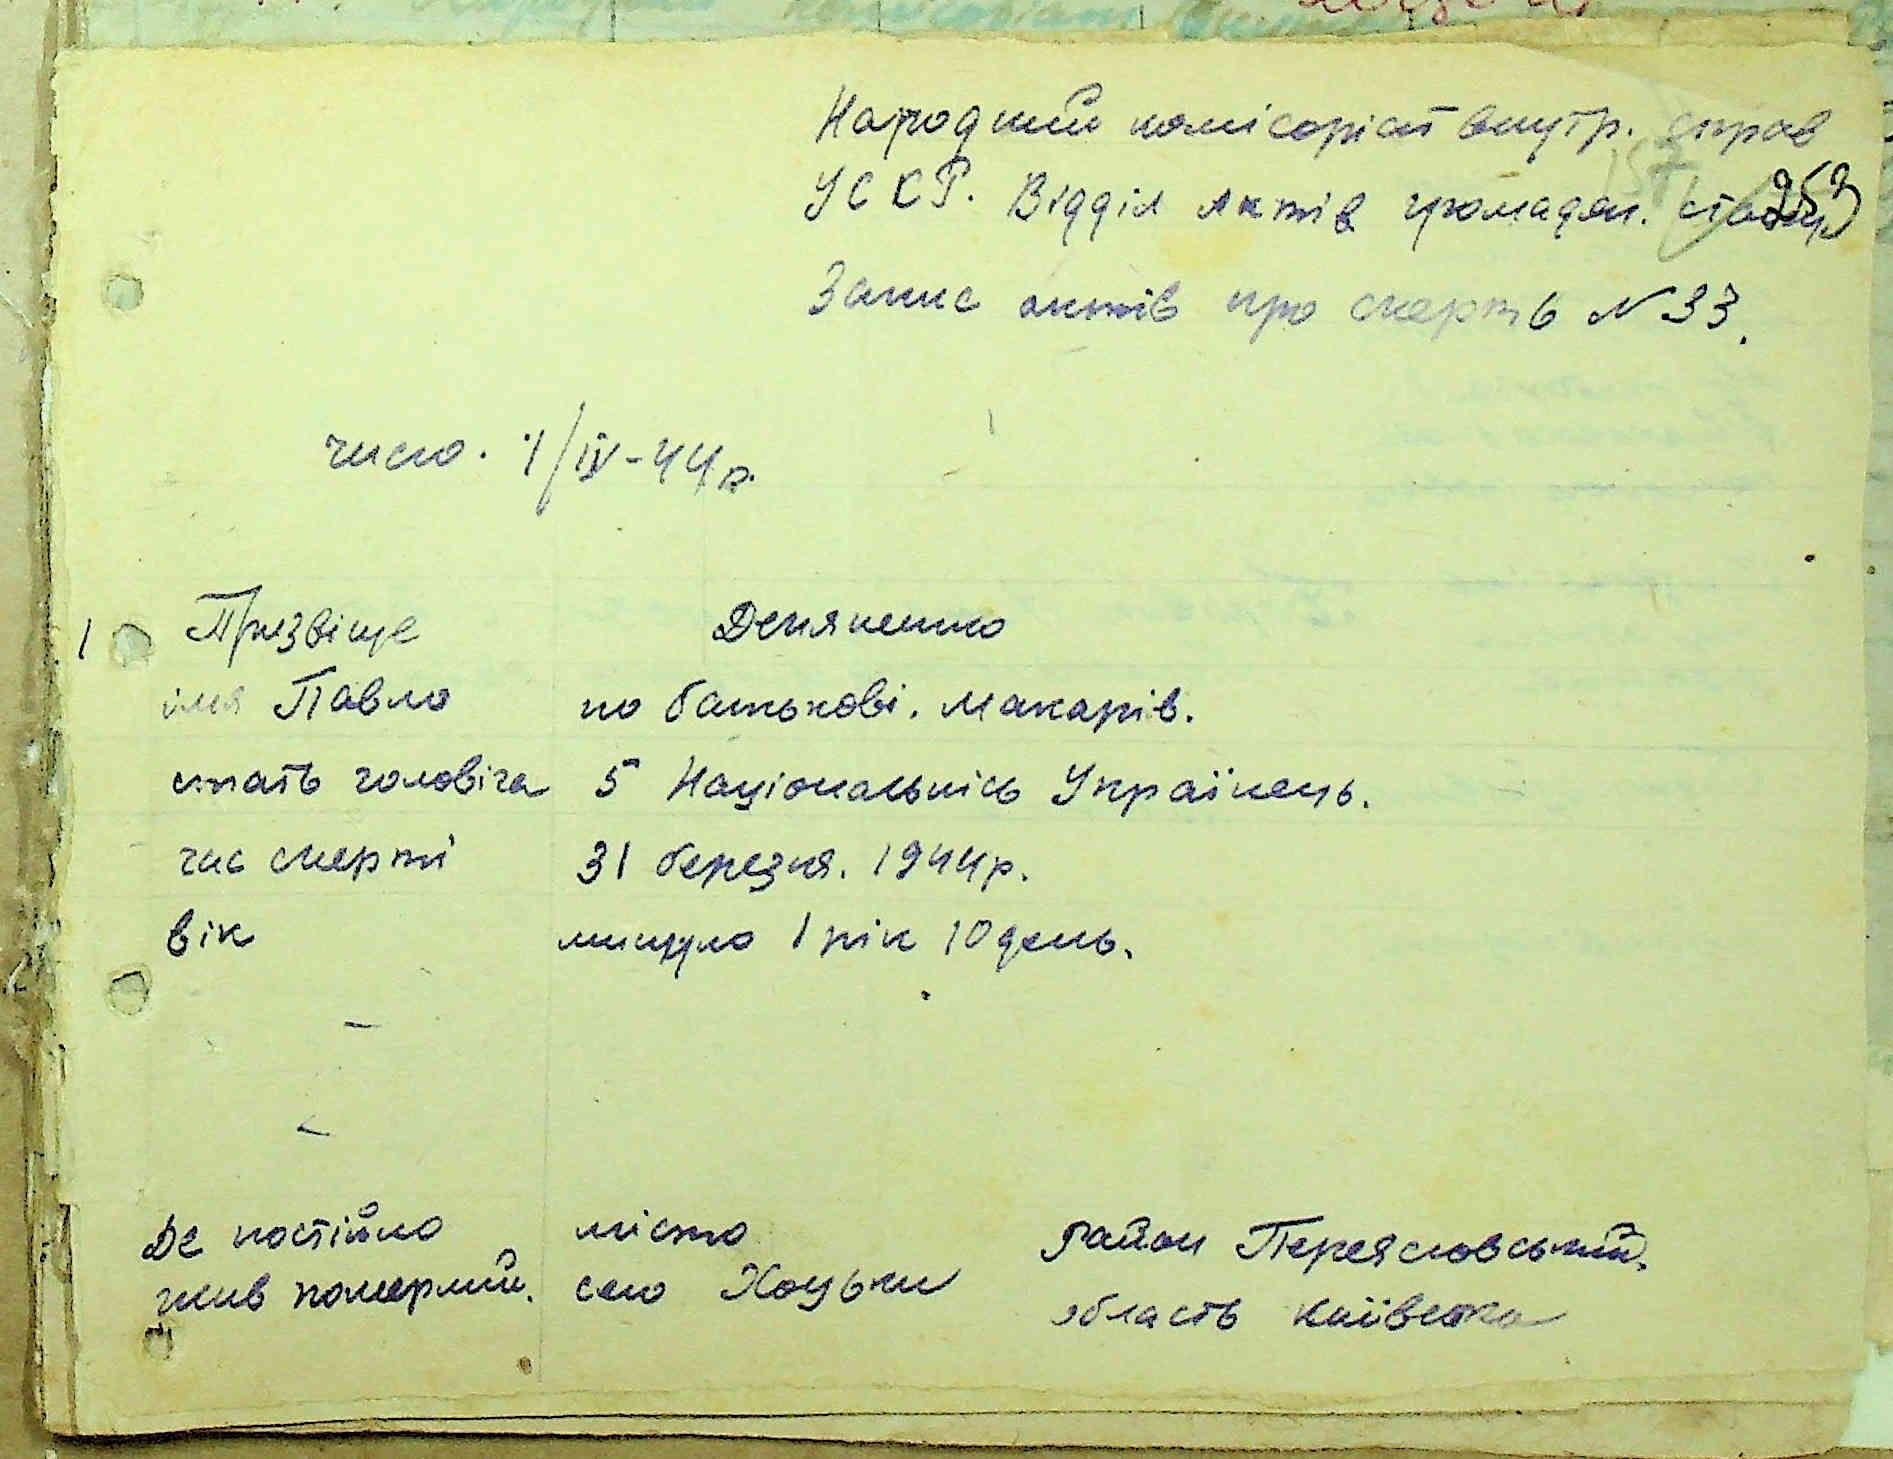 Народний комісаріат внутр. справ
УССР. Відділ актів громадян. стану
Запис актів про смерть N 33.
число. 1/IV-44р.
1 Призвіще Демяненко
імя Павло по батькові. Макарів.
стать чоловіча 5 Національнісь Українець.
час смерті 31 березня. 1944р.
вік минуло 1 рік 10 день.
Де постійно місто район Переясловський.
жив померлий. село Хоцьки область Київська